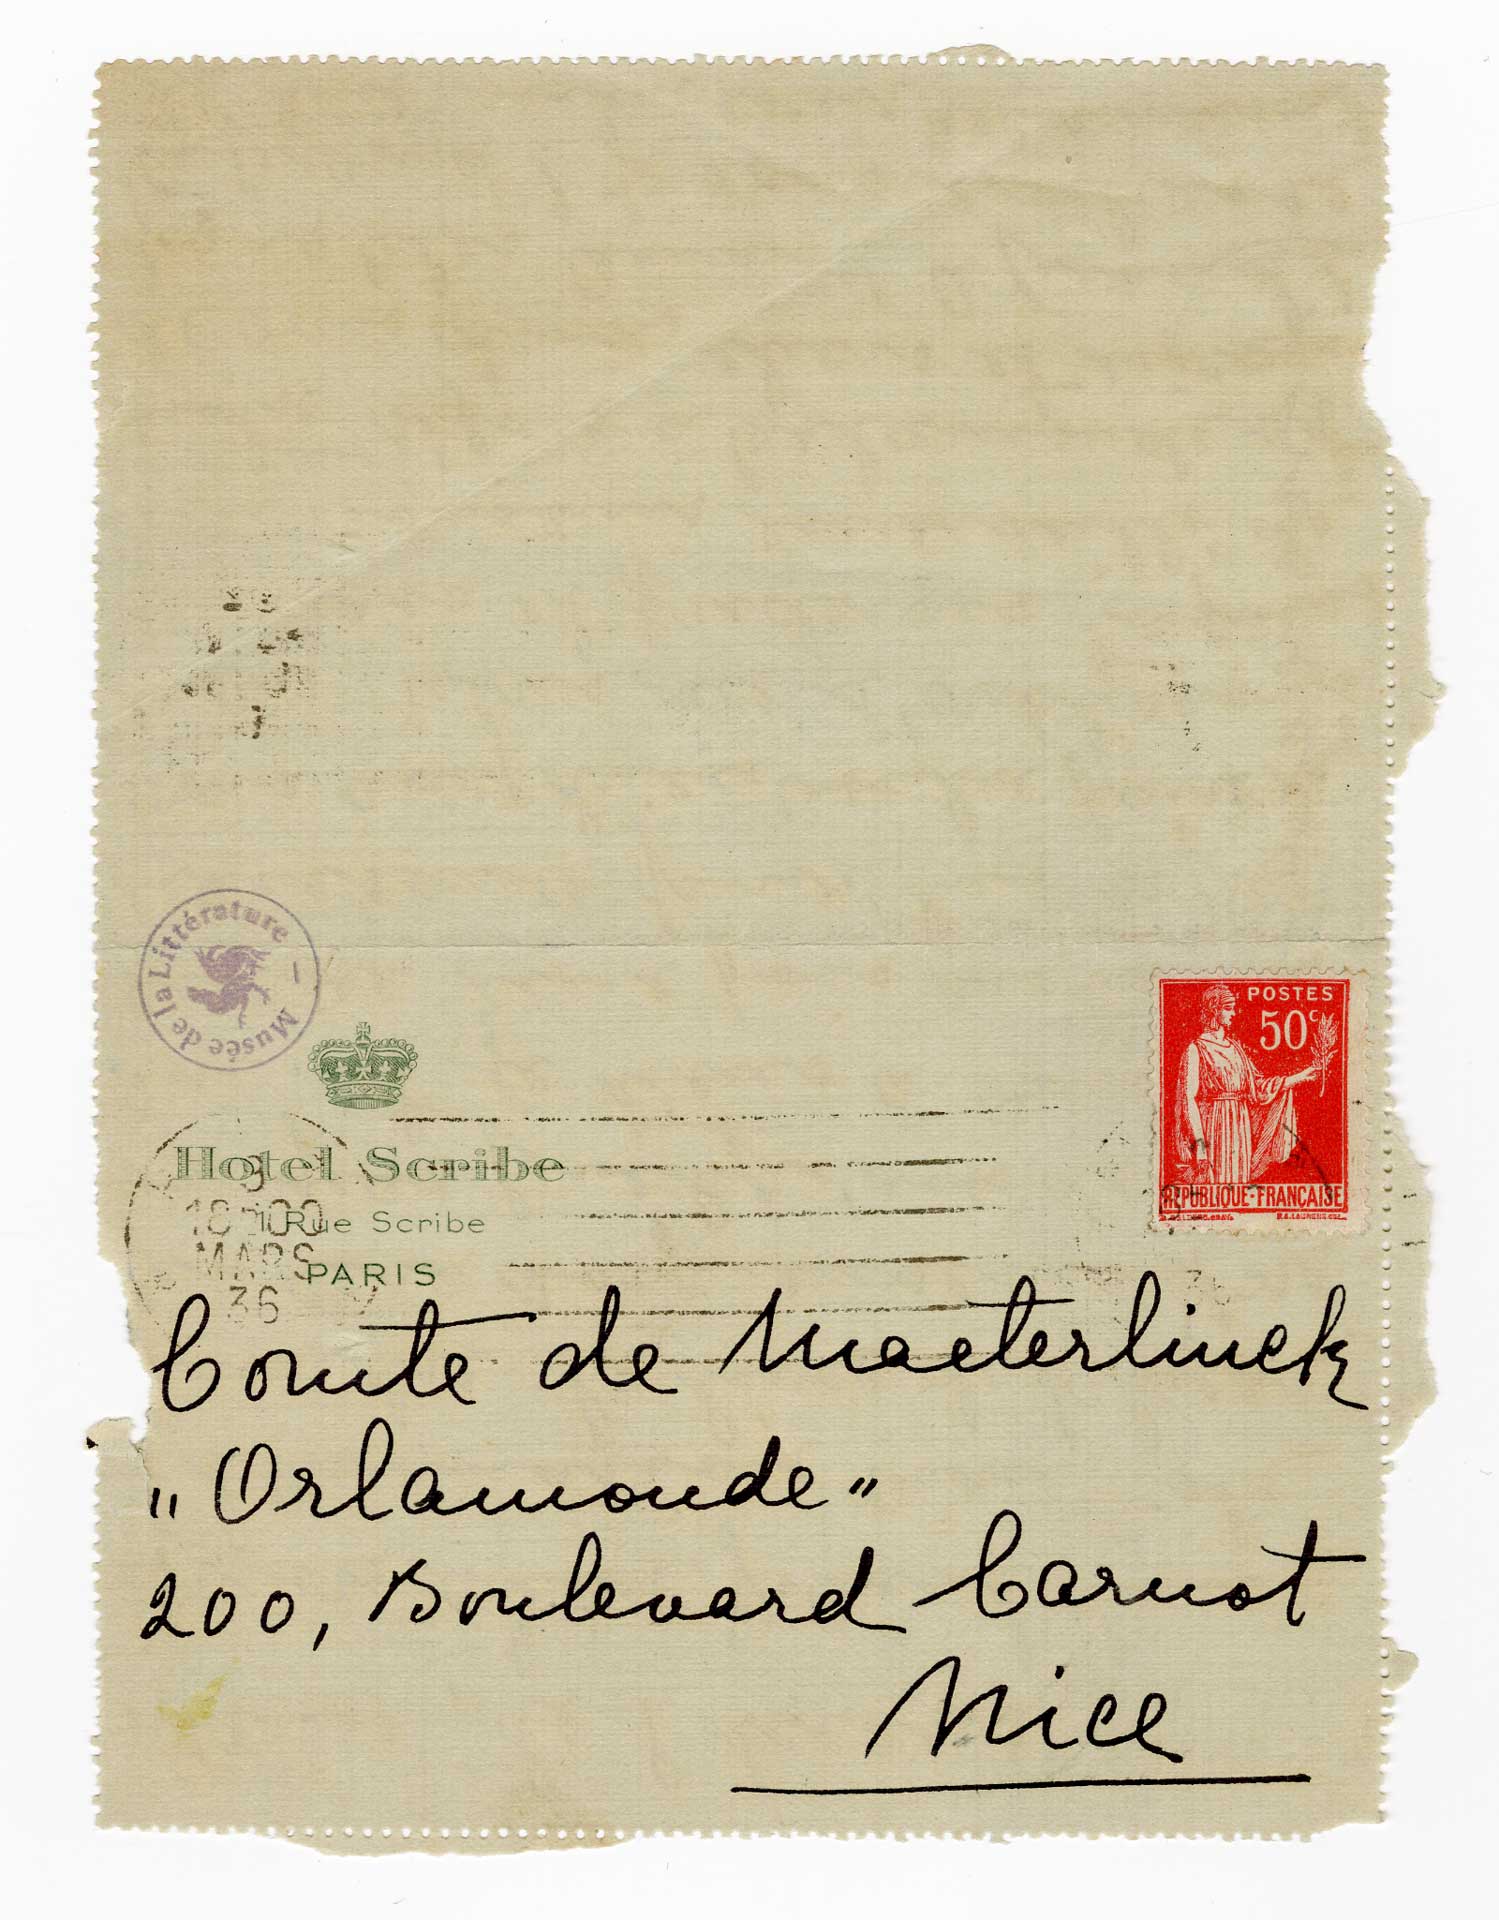 Musée de la Littérature –
POSTES
50c
RÉPUBLIQUE-FRANÇAISE
Hotel Scribe
1 Rue Scribe
PARIS
18H00
MARS
36
Comte de Maeterlinck
"Orlamonde"
200, Boulevard Carnot
Nice